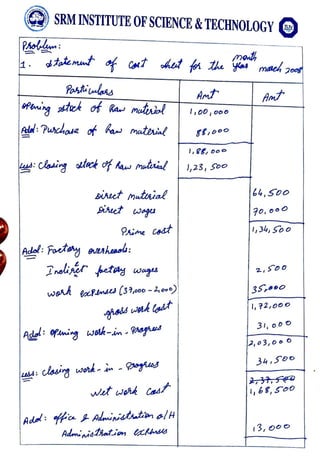 SRM INSTITUTE OF SCIENCE & TECHNOLOGY
Problem:
month
1. Statement of cost sheet for the year march 2008
Particulars Amt Amt
opening stock of Raw material 1,00,000
Add: Purchase of Raw material 88,000
1,88,000
Less: Closing stock of Raw material 1,23,500
Direct material 64,500
Direct wages 70,000
Prime cost 1,34,500
Add: Factory overheads:
Indirect factory wages 2,500
work expenses (37,000 - 2,000) 35,000
gross work cost 1,72,000
Add: opening work-in-Progress 31,000
2,03,000
Less: closing work-in-Progress 34,500
2,37,500
Net work cost 1,68,500
Add: office & Administration o/H
Administration expenses 13,000